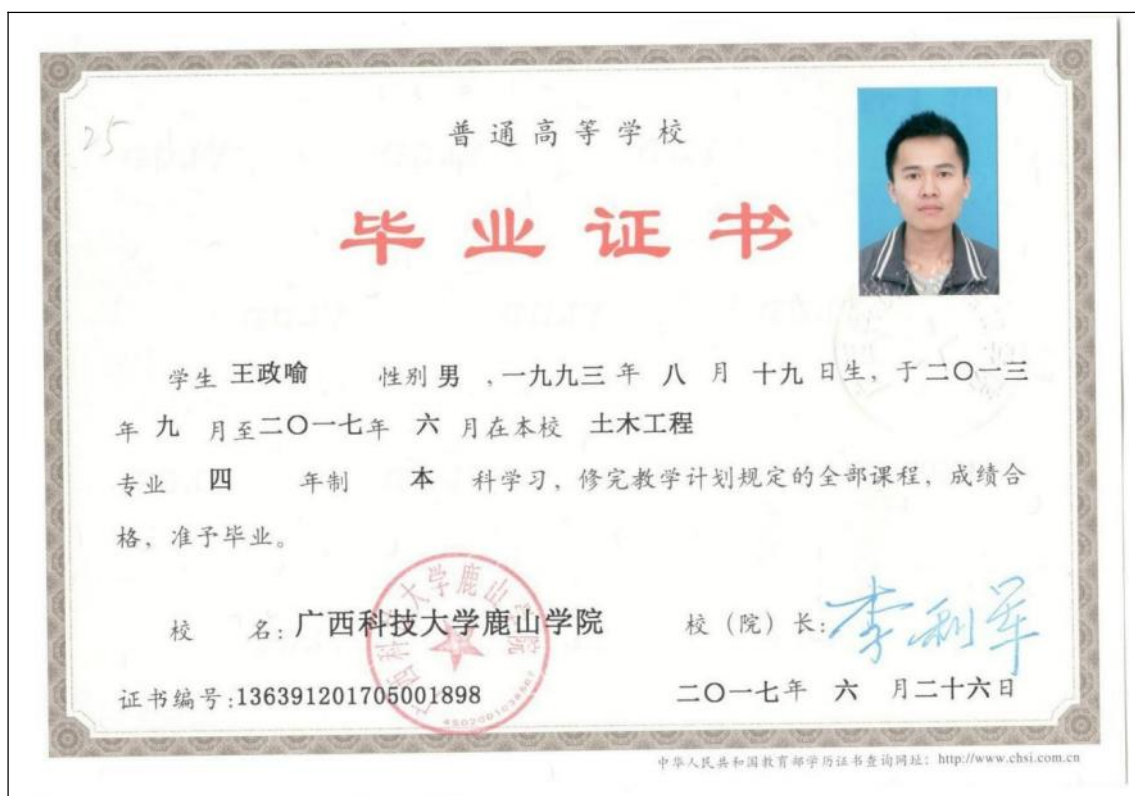 25
普通高等学校
毕业证书
学生 王政喻 性别 男 ,一九九三 年 八 月 十九 日生, 于二〇一三
年 九 月至二〇一七年 六 月在本校 土木工程
专业 四 年制 本 科学习, 修完教学计划规定的全部课程, 成绩合
格, 准予毕业。
校 名: 广西科技大学鹿山学院 校 (院) 长: 李利军
证书编号:136391201705001898 二〇一七年 六 月二十六日
广西科技大学鹿山学院
中华人民共和国教育部学历证书查询网址: http://www.chsi.com.cn